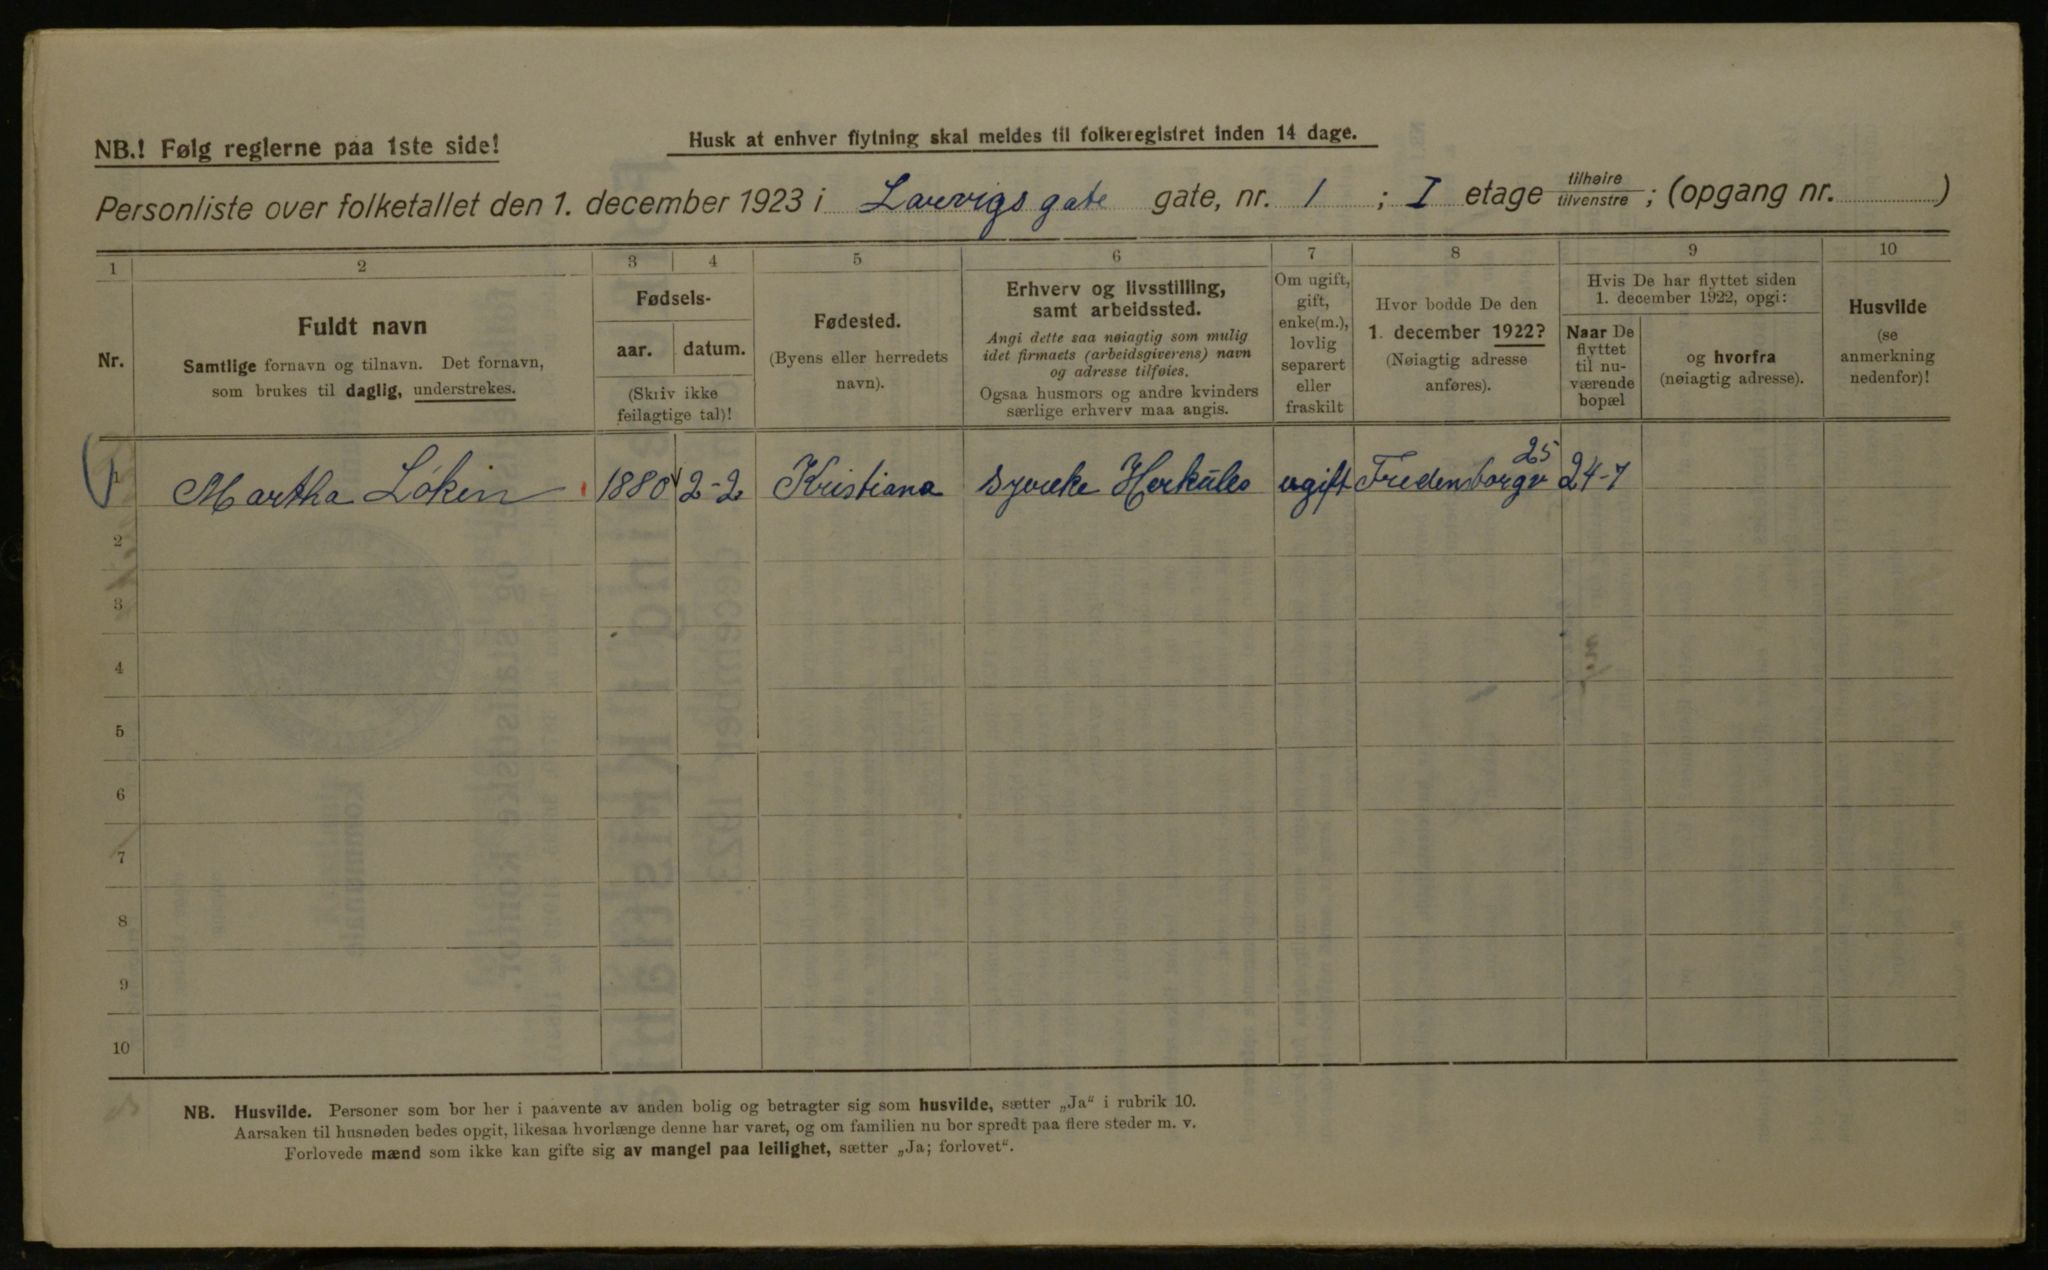 NB.! Følg reglerne paa 1ste side!
Husk at enhver flytning skal meldes til folkeregistret inden 14 dage.
Personliste over folketallet den 1. december 1923 i Larvigs gate gate, nr. 1 ; I etage tilhøire tilvenstre ; (opgang nr. )
1 2 3 4 5 6 7 8 9 10
Nr.
Fuldt navn
Samtlige fornavn og tilnavn. Det fornavn,
som brukes til daglig, understrekes.
Fødsels-
aar. datum.
(Skriv ikke
feilagtige tal)!
Fødested.
(Byens eller herredets
navn).
Erhverv og livsstilling,
samt arbeidssted.
Angi dette saa nøiagtig som mulig
idet firmaets (arbeidsgiverens) navn
og adresse tilføies.
Ogsaa husmors og andre kvinders
særlige erhverv maa angis.
Om ugift,
gift,
enke(m.),
lovlig
separert
eller
fraskilt
Hvor bodde De den
1. december 1922?
(Nøiagtig adresse
anføres).
Hvis De har flyttet siden
1. december 1922, opgi:
Naar De
flyttet
til nu-
værende
bopæl
og hvorfra
(nøiagtig adresse).
Husvilde
(se
anmerkning
nedenfor)!
1 Martha Løken 1880 2-2 Kristiana Herkules ugift Fredensborgv 25 24-7
2
3
4
5
6
7
8
9
10
NB. Husvilde. Personer som bor her i paavente av anden bolig og betragter sig som husvilde, sætter „Ja“ i rubrik 10.
Aarsaken til husnøden bedes opgit, likesaa hvorlænge denne har varet, og om familien nu bor spredt paa flere steder m. v.
Forlovede mænd som ikke kan gifte sig av mangel paa leilighet, sætter „Ja; forlovet“.